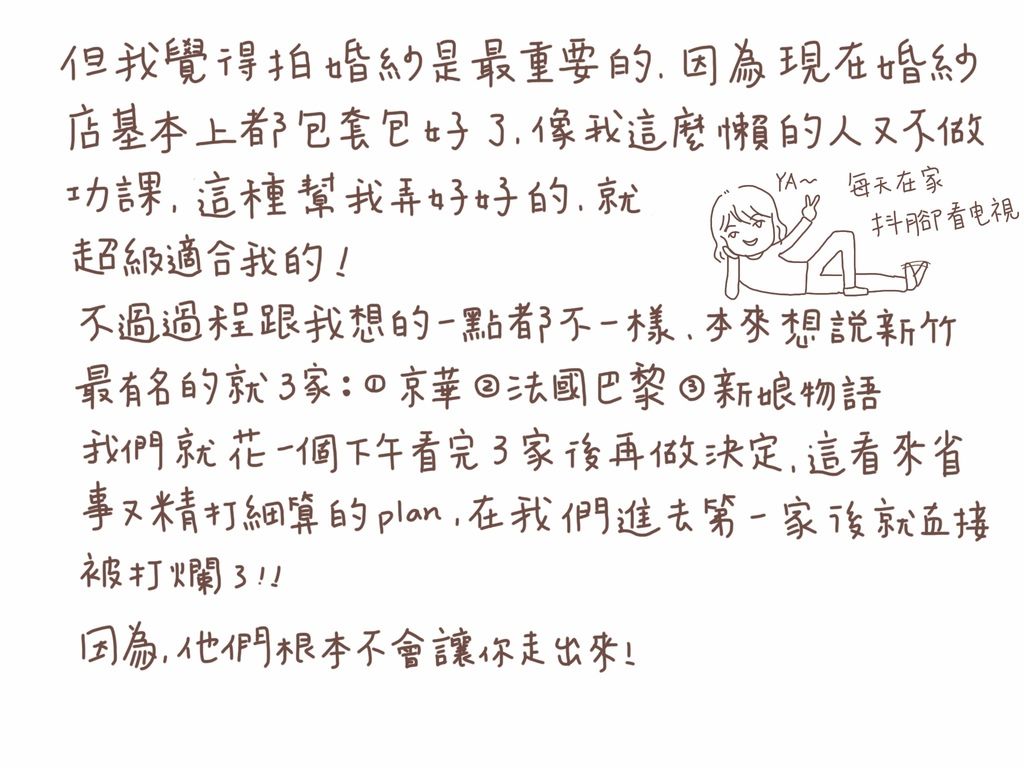 但我覺得拍婚紗是最重要的.因為現在婚紗
店基本上都包套包好了.像我這麼懶的人又不做
功課,這種幫我弄好好的.就
超級適合我的!
YA～
每天在家
抖腳看电視
不過過程跟我想的一點都不一樣.本來想說新竹
最有名的就3家:①京華②法國巴黎③新娘物語
我們就花一個下午看完3家後再做決定,這看來省
事又精打細算的plan,在我們進去第一家後就直接
被打爛了!!
因為,他們根本不會讓你走出來!